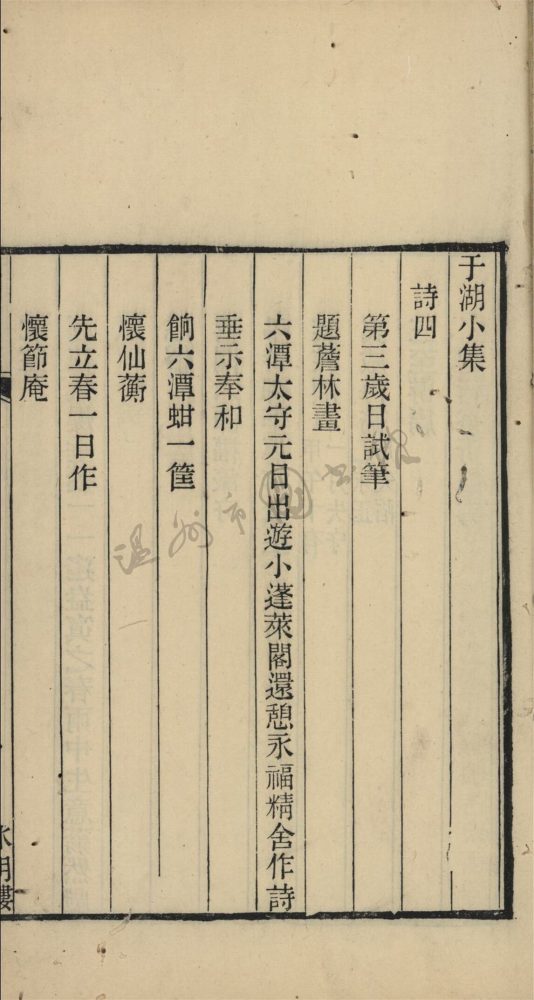 于湖小集
詩四
第三歲日試筆
題薝林畫
六潭太守元日出遊小蓬萊閣還憩永福精舍作詩
垂示奉和
餉六潭蚶一筐
懷仙蘅
先立春一日作
懷節庵
水明樓
溫州市圖書館